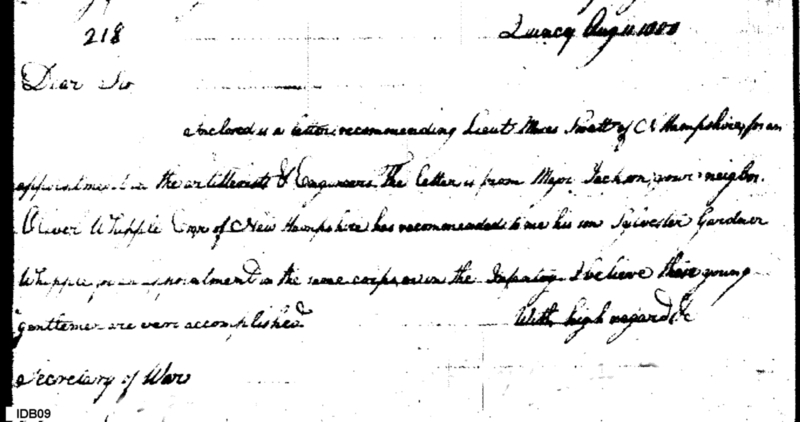 218
Quincy Aug 11. 1800
Dear Sir
Inclosed is a letter recommending Lieut Moses Swett of N Hampshire, for an
appointment in the artillerists & Engineers. The letter is from Major Jackson, your neighbor.
Oliver Whipple Esqr of New Hampshire has recommended to me his son Sylvester Gardner
Whipple, for an appointment in the same corps, or in the Infantry. I believe these young
gentlemen are very accomplished.
With high regard &c
Secretary of War
IDB09